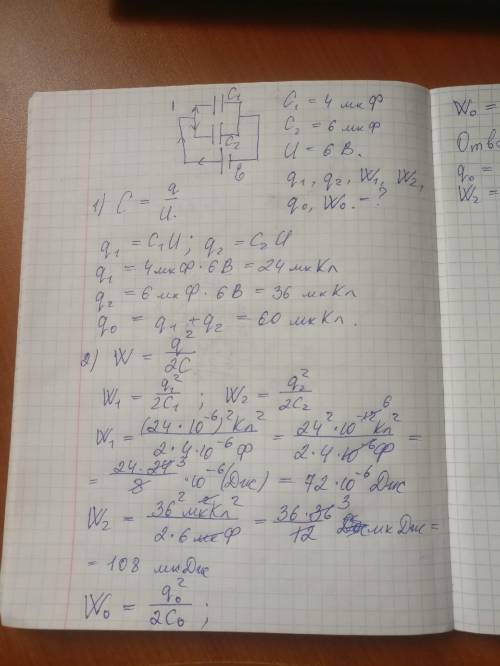 C₁
C₂
ℰ
C₁ = 4 мкФ
C₂ = 6 мкФ
U = 6 В.
q₁, q₂, W₁, W₂,
q₀, W₀ - ?
1) C = q/U.
q₁ = C₁U; q₂ = C₂U
q₁ = 4мкФ · 6В = 24 мкКл
q₂ = 6 мкФ · 6В = 36 мкКл
q₀ = q₁ + q₂ = 60 мкКл.
2) W = q²/2C
W₁ = q₁²/2C₁ ; W₂ = q₂²/2C₂
W₁ = (24 · 10⁻⁶)² Кл²/2 · 4 · 10⁻⁶ Ф = 24² · 10⁻¹² ⁶ Кл²/2 · 4 · 10⁻⁶ Ф =
= 24 · 24 ³/8 · 10⁻⁶ (Дж) = 72 · 10⁻⁶ Дж
W₂ = 36² мк²Кл²/2 · 6 мкФ = 36 · 36 ³/12 мкДж =
= 108 мкДж
W₀ = q₀²/2C₀ ;
W₀ =
Отве
q₀ =
W₂ =